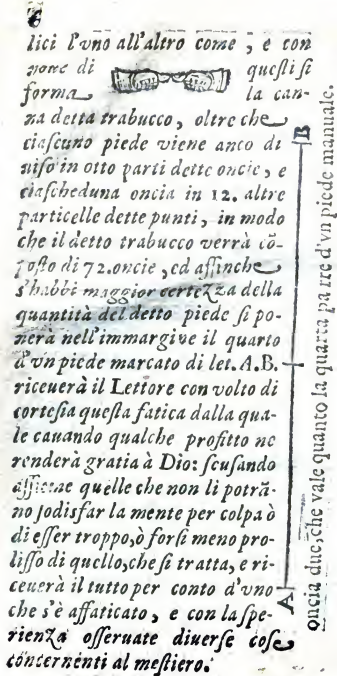 lici l'vno all'altro come ; e con
pone di questi si
forma la can-
na detta trabucco, oltre che
ciascuno piede viene anco di
uiso in otto parti dette oncie, e
ciascheduna oncia in 12. altre
particelle dette punti, in modo
che il detto trabucco verrà cō-
posto di 72.oncie, ed affinche
s'habbi maggior certezza della
quantità del detto piede si po-
nerà nell'immargine il quarto
d'vn piede marcato di let. A.B.
riceuerà il Lettore con volto di
cortesia questa fatica dalla qua-
le cauando qualche profitto ne
renderà gratia à Dio: scusando
assieme quelle che non li potrā-
no sodisfar la mente per colpa ò
di esser troppo, ò forsi meno pro-
lisso di quello, che si tratta, e ri-
ceuerà il tutto per conto d'vno
che s'è affaticato, e con la spe-
rienza osseruate diuerse cose
concernenti al mestiero.
A B
oncia due, che vale quanto la quarta parte d'vn piede manuale.